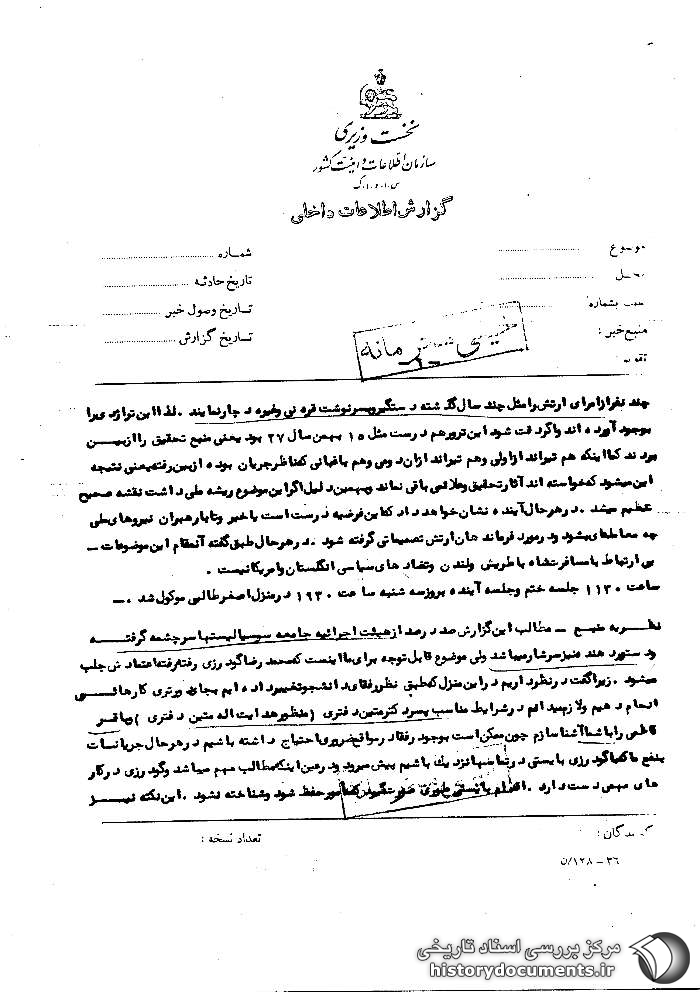 نخست وزیری
سازمان اطلاعات و امنیت کشور
س.ا.و.ا.ک
گزارش اطلاعات داخلی
موضوع
شماره
محل
تاریخ حادثه
بشماره
تاریخ وصول خبر
منبع خبر :
تاریخ گزارش
مانه
چند نفر از امرای ارتش را مثل چند سال گذشته دستگیر و بسرنوشت قره نی و غیره دچار نمایند . لذا این تراژدی را
بوجود آورده اند و اگر دقت شود این ترور هم درست مثل ۱۵ بهمن سال ۲۷ بود یعنی منبع تحقیق را از بین
بردند کما اینکه هم تیرانداز اولی و هم تیرانداز دومی و هم باغبانی که ناظر جریان بوده از بین رفته یعنی نتیجه
این میشود که خواسته اند آثار تحقیق و علائمی باقی نماند و بهمین دلیل اگر این موضوع ریشه ملی داشت نقشه صحیح
تنظیم میشد . در هر حال آینده نشان خواهد داد که این فرضیه درست است یا خیر و تا با رهبران نیروهای ملی
چه معامله ای میشود و در مورد فرماندهان ارتش تصمیماتی گرفته شود . در هر حال طبق گفته آنمقام این موضوعات -
بی ارتباط با مسافرت شاه با طریش و لندن و تضاد های سیاسی انگلستان و امریکا نیست .
ساعت ۱۱۳۰ جلسه ختم و جلسه آینده بروز سه شنبه ساعت ۱۹۳۰ در منزل اصغر طالبی موکول شد . -
نظریه منبع - مطالب این گزارش صد در صد از هیئت اجرائیه جامعه سوسیالیستها سرچشمه گرفته
و دستورد هنده نیز سرشار میباشد ولی موضوع قابل توجه برای ما اینست که محمد رضا گودرزی رفته رفته اعتمادش جلب
میشود . زیرا گفت در نظر داریم در این منزل که طبق نظر رفقای دانشجو تغییر داده ایم بجای ورتری کارهائی
انجام دهیم و لازم میدانم در شرایط مناسب پسر دکتر متین دفتری (منظور هدایت اله متین دفتری) و باقر
کاظمی را با شما آشنا سازم چون ممکن است بوجود رفقا در مواقع ضروری احتیاج داشته باشیم در هر حال جریانات
بنفع ما که با گودرزی بایستی در تماس و نزدیک باشیم پیش میرود و در عین اینکه مطالب مهم میباشد و گودرزی در کار
های مهمی دست دارد . اقدام بایستی طوری صورت گیرد که مأمور حفظ شود و شناخته نشود . این نکته نیز
گیرندگان :
تعداد نسخه :
۳۶ - ۱۲۸/ن
مرکز بررسی اسناد تاریخی
historydocuments.ir